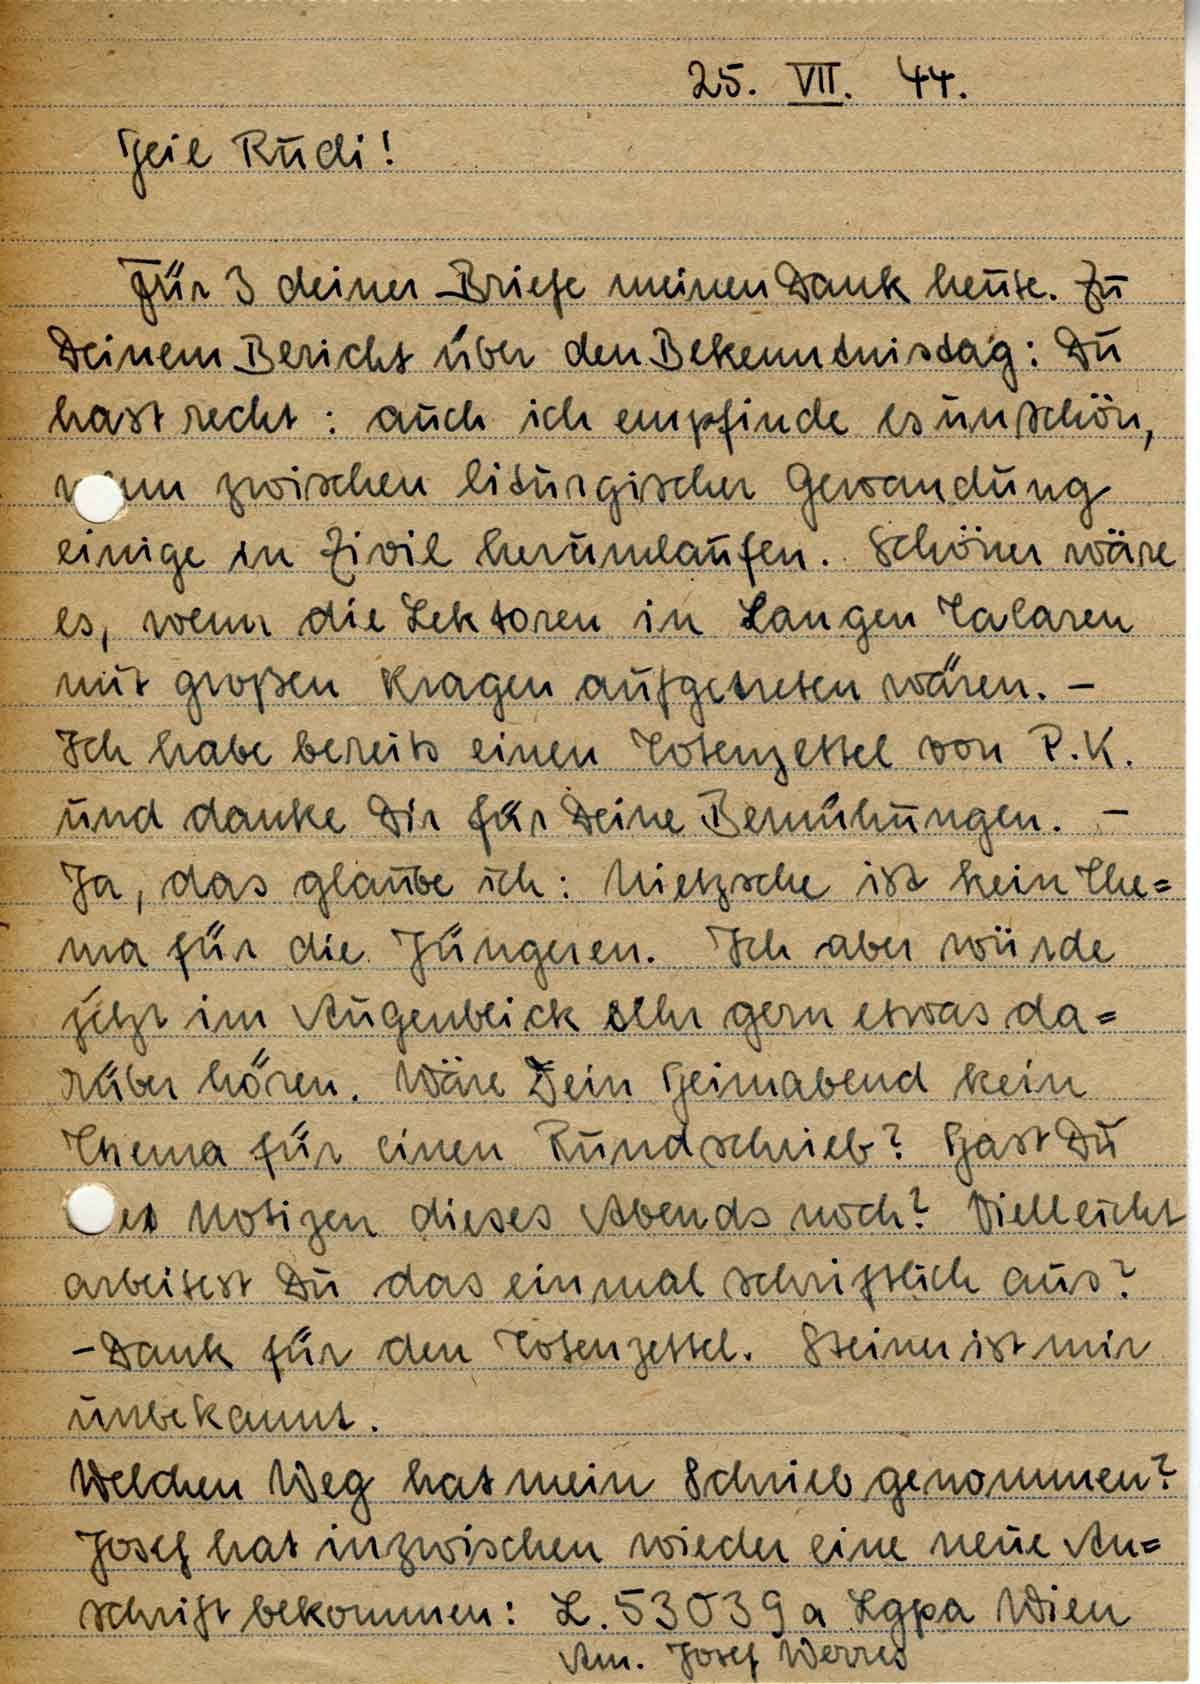 25. VII. 44.
Heil Rudi!
Für 3 deiner Briefe meinen Dank heute. Zu
Deinem Bericht über den Bekenntnistag: Du
hast recht: auch ich empfinde es unschön,
wenn zwischen liturgischer Gewandung
einige in Zivil herumlaufen. Schöner wäre
es, wenn die Lektoren in Langen Talaren
mit großen Kragen aufgetreten wären. –
Ich habe bereits einen Totenzettel von P.K.
und danke Dir für Deine Bemühungen. –
Ja, das glaube ich: Nietzsche ist kein The=
ma für die Jüngeren. Ich aber würde
jetzt im Augenblick sehr gern etwas da=
rüber hören. Wäre Dein Heimabend kein
Thema für einen Rundschrieb? Hast Du
Notizen dieses Abends noch? Vielleicht
arbeitest Du das einmal schriftlich aus?
– Dank für den Totenzettel. Steiner ist mir
unbekannt.
Welchen Weg hat mein Schrieb genommen?
Josef hat inzwischen wieder eine neue An=
schrift bekommen: L. 53039a Lgpa Wien
Josef Werres